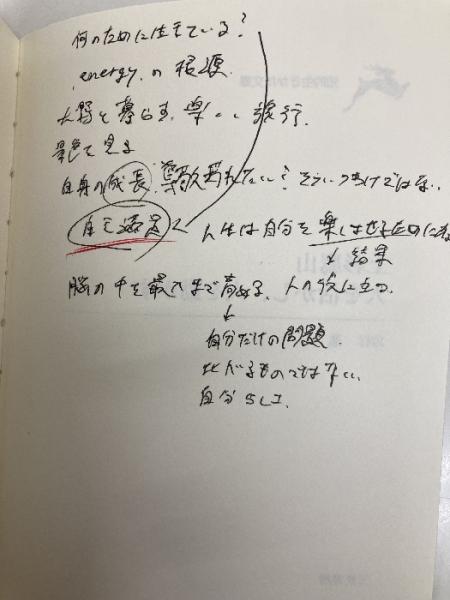 何のために生きている?
energy の根源
大野と暮らす、楽しい旅行.
景色を見る
自身の成長. 尊敬されたい?そういうわけではない..
自己満足 人生は自分を楽しませるために
結果
脳の中を最大まで高める、人の役に立つ.
自分だけの問題.
比べるものではない.
自分らしく.